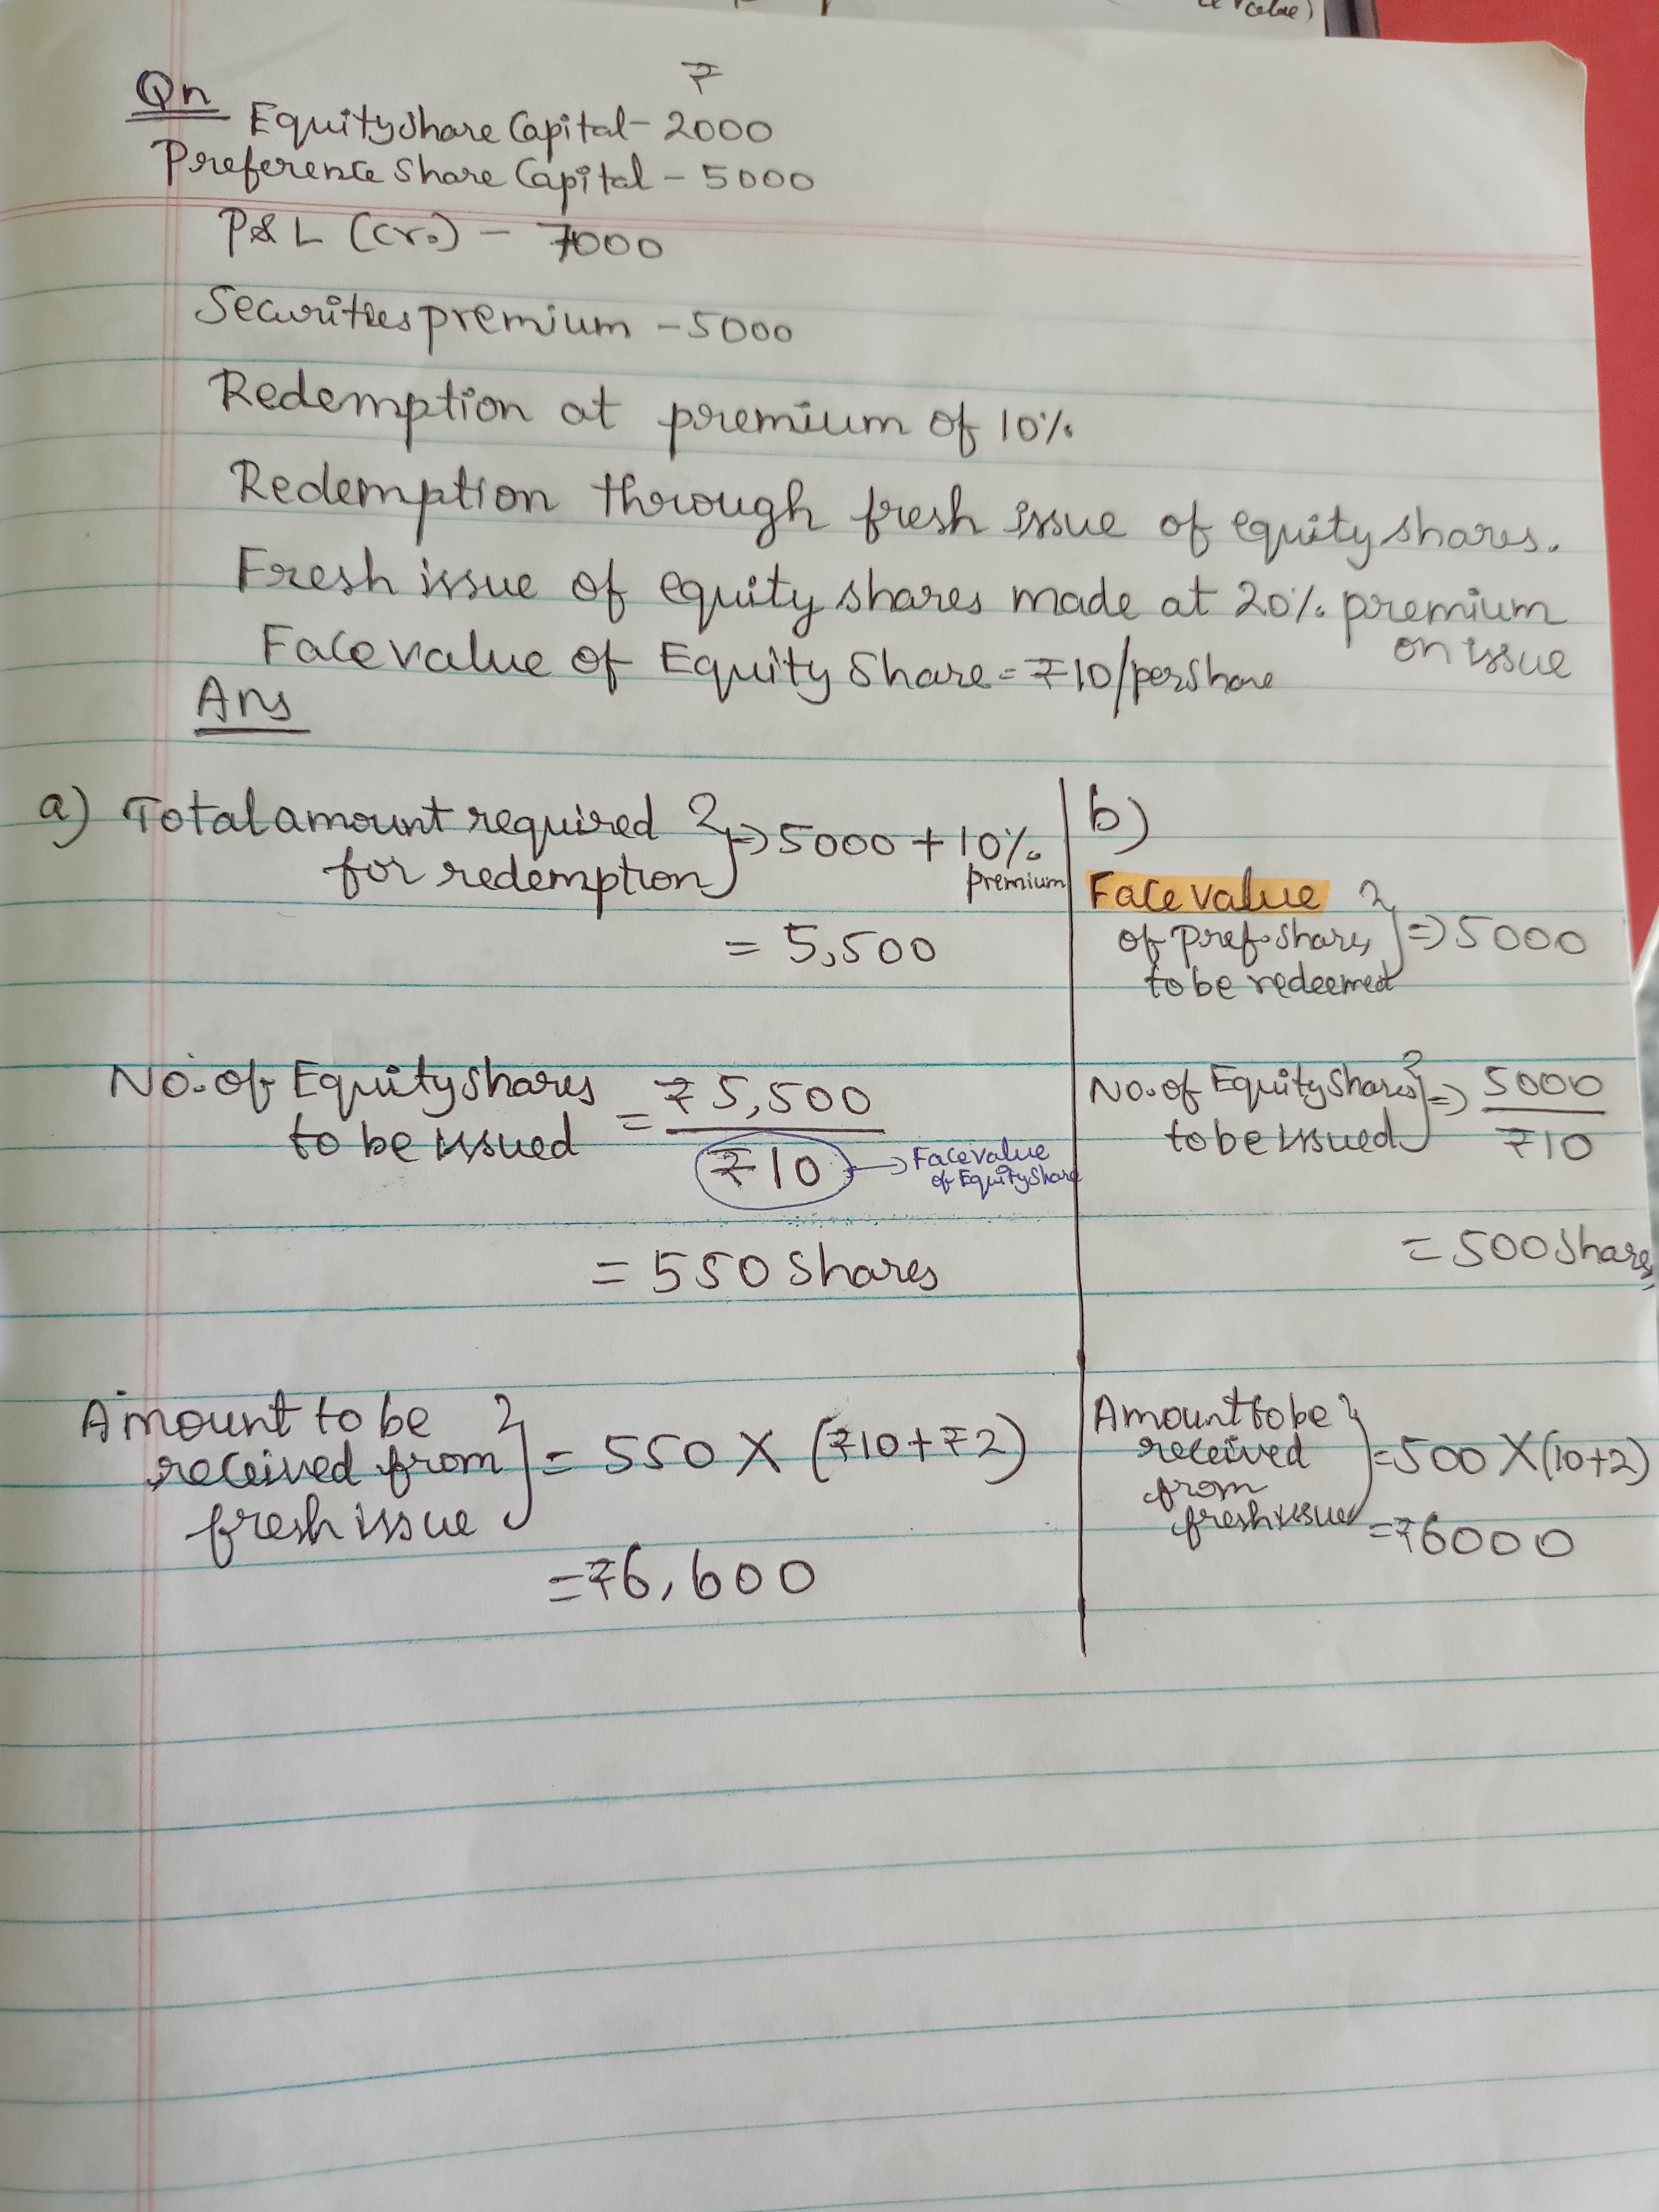 ce value)
Qn
₹
Equity share Capital - 2000
Preference Share Capital - 5000
P&L (Cr.) - 7000
Securities premium - 5000
Redemption at premium of 10%
Redemption through fresh issue of equity shares.
Fresh issue of equity shares made at 20% premium
on issue
Face value of Equity Share = ₹10/per share
Ans
a) Total amount required
for redemption } => 5000 + 10%
premium
= 5,500
No. of Equity shares
to be issued = ₹5,500
₹10 → Face value
of Equity Share
= 550 Shares
Amount to be
received from
fresh issue } = 550 X (₹10 + ₹2)
= ₹6,600
b)
Face value
of Pref. shares
to be redeemed } => 5000
No. of Equity Shares
to be issued } => 5000
₹10
= 500 Shares
Amount to be
received
from
fresh issue } = 500 X (10+2)
= ₹6000